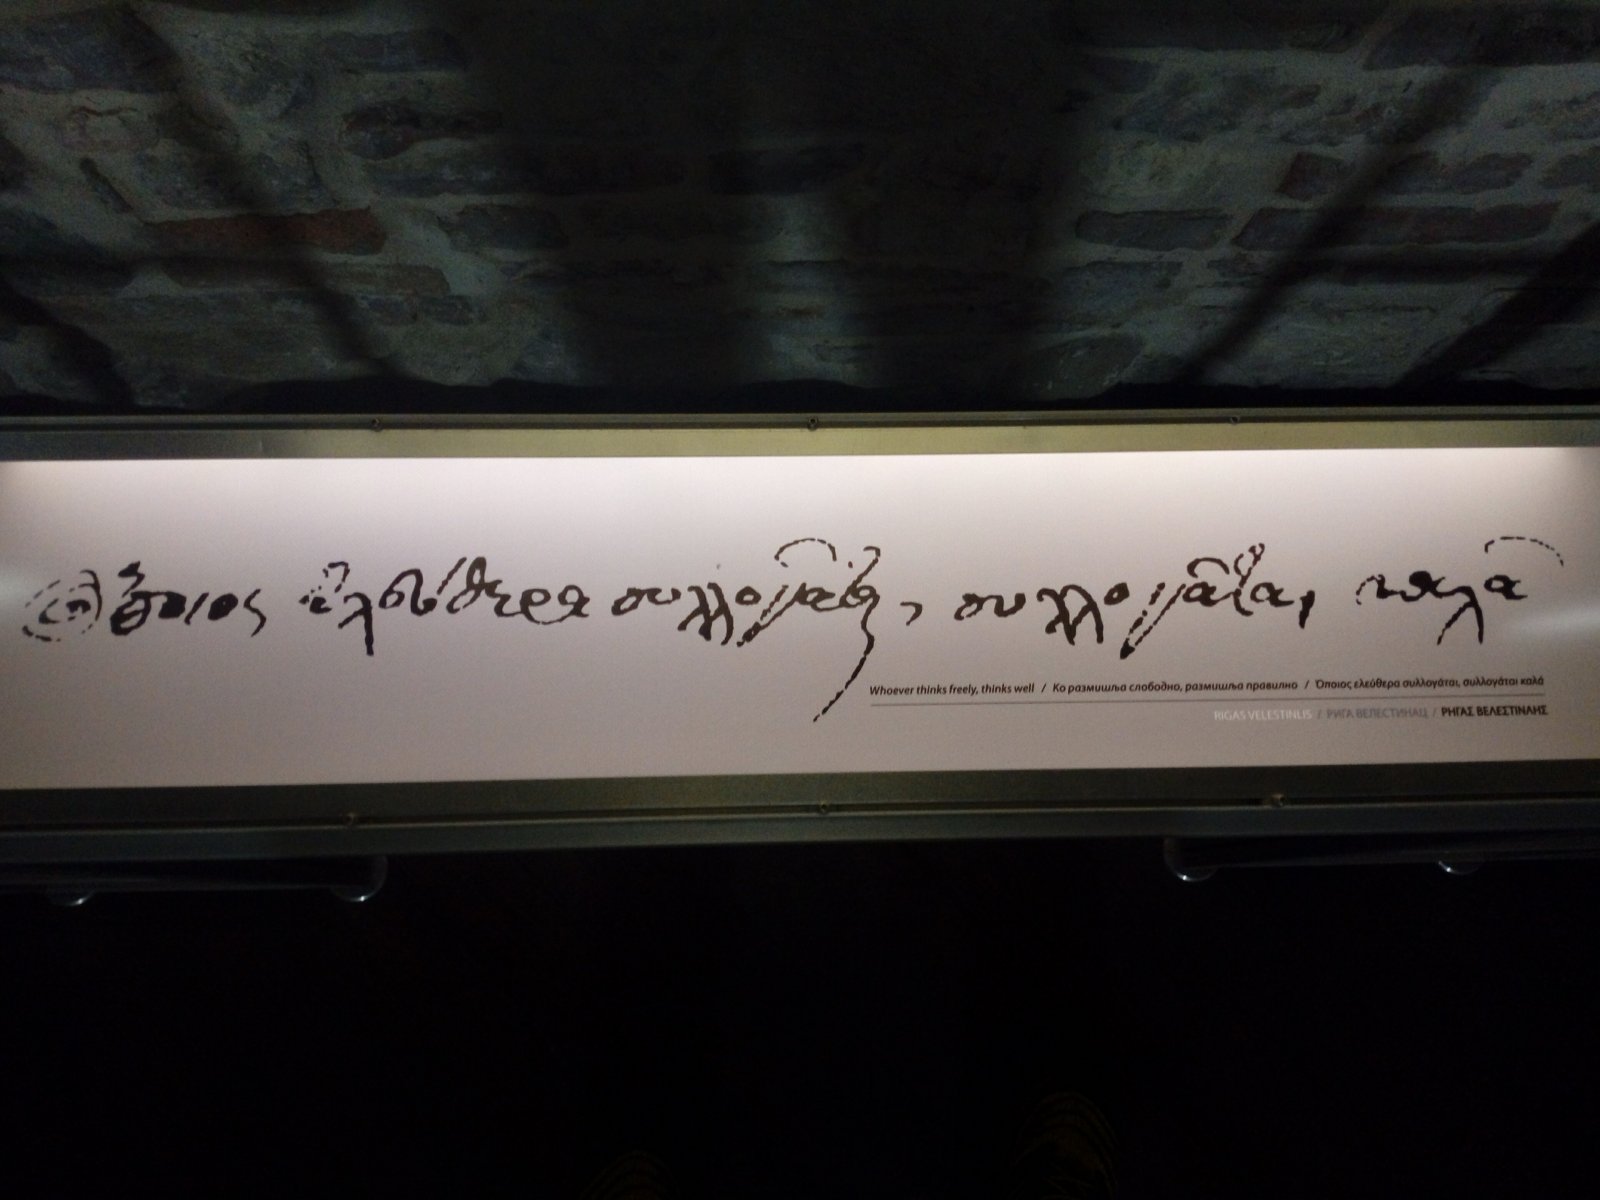 Ὅποιος ἐλεύθερα συλλογᾶται, συλλογᾶται καλά
Whoever thinks freely, thinks well / Ко размишља слободно, размишља правилно / Όποιος ελεύθερα συλλογάται, συλλογάται καλά
RIGAS VELESTINLIS / РИГА ВЕЛЕСТИНАЦ / ΡΗΓΑΣ ΒΕΛΕΣΤΙΝΛΗΣ